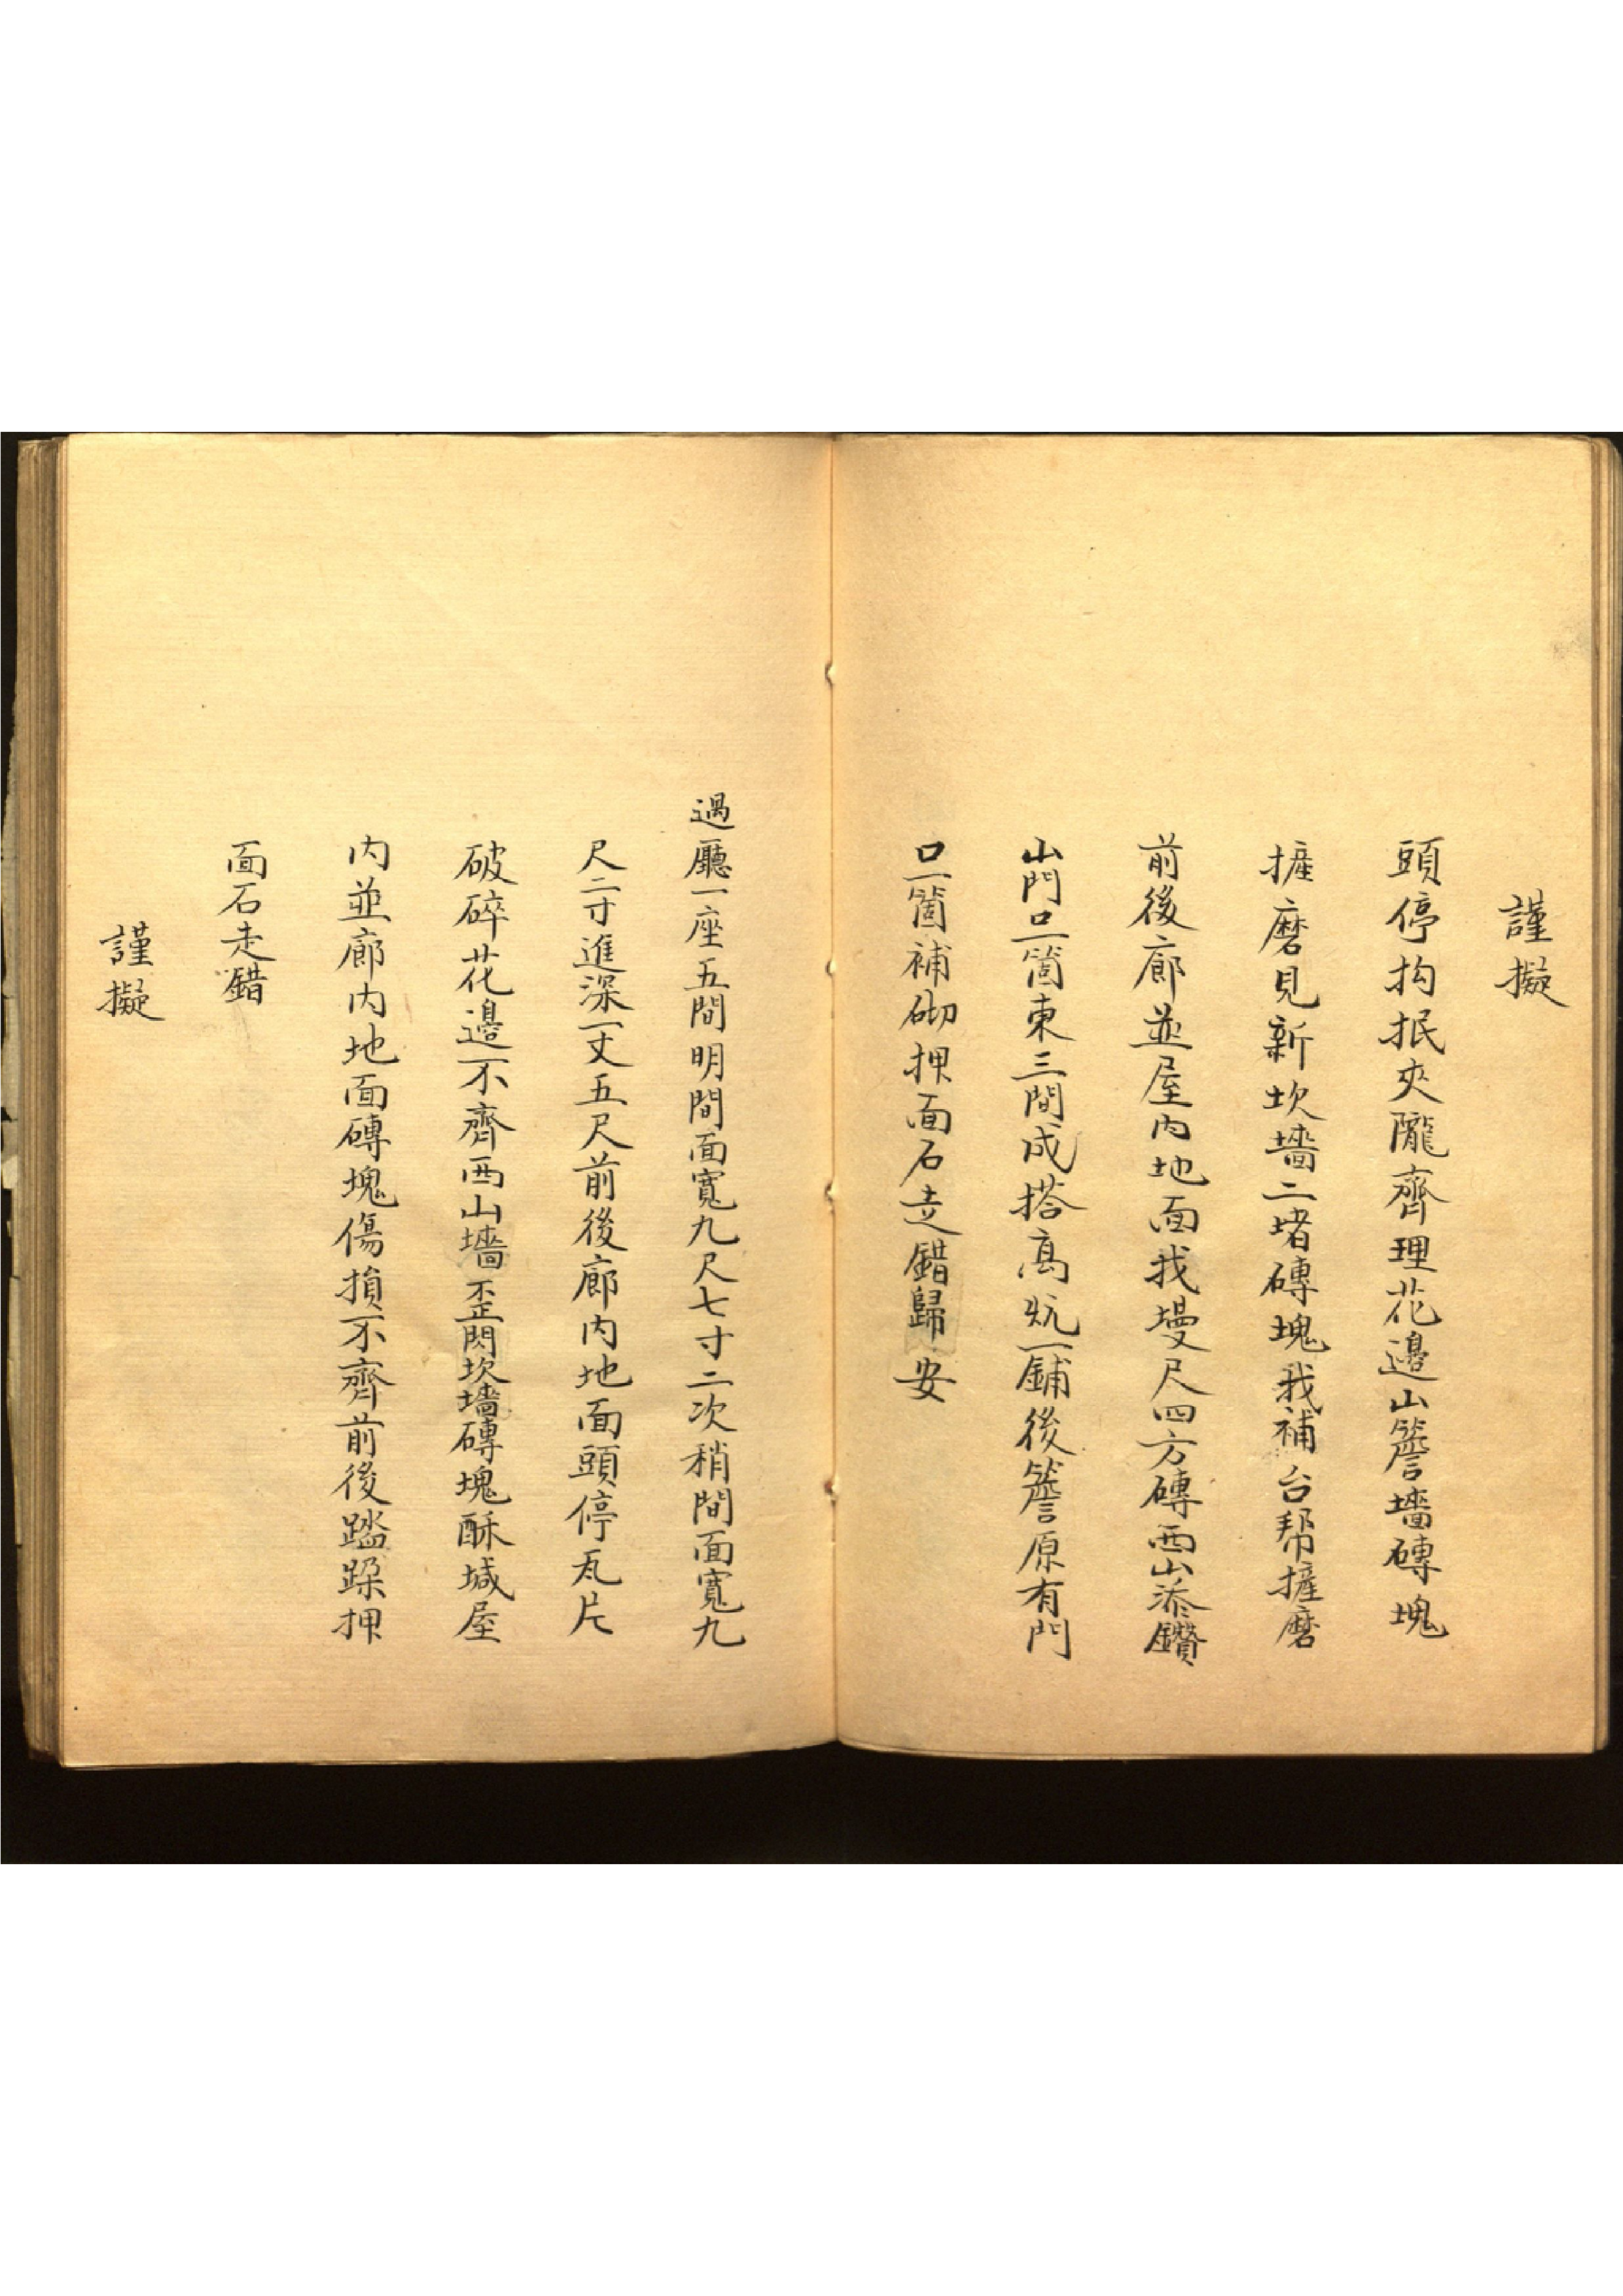 謹擬
頭停抅抿夾隴齊理花邊山簷墻磚塊
摌磨見新坎墻二堵磚塊我補台帮摌磨
前後廊並屋内地面我墁尺四方磚西山添鑽
山門口一箇東三間成搭高炕一鋪後簷原有門
口一箇補砌押面石走錯歸安
過廳一座五間明間面寬九尺七寸二次稍間面寬九
尺二寸進深一丈五尺前後廊内地面頭停瓦片
破碎花邊不齊西山墻歪閃坎墻磚塊酥堿屋
内並廊内地面磚塊傷損不齊前後踏跺押
面石走錯
謹擬